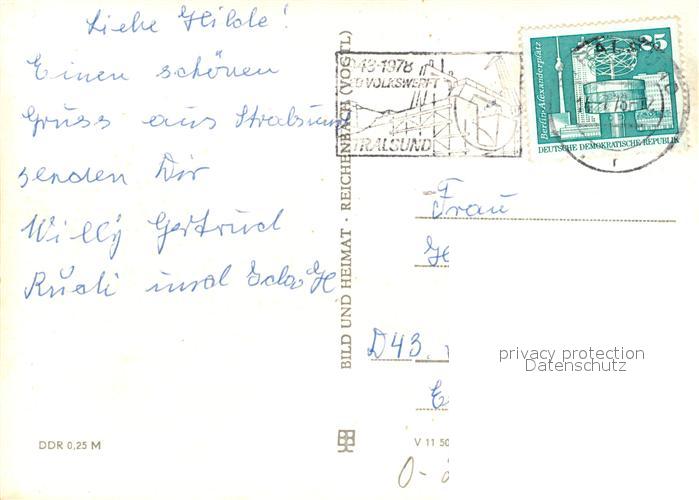 Liebe Hilde!
Einen schönen
Gruss aus Stralsund
senden Dir
Willy Gertrud
Rudi und Edda
BILD UND HEIMAT · REICHENBACH (VOGTL)
1948-1978
VOLKSWERFT
STRALSUND
25
Berlin-Alexanderplatz
DEUTSCHE DEMOKRATISCHE REPUBLIK
r
Frau
D43.
privacy protection
Datenschutz
DDR 0,25 M
V 11 50